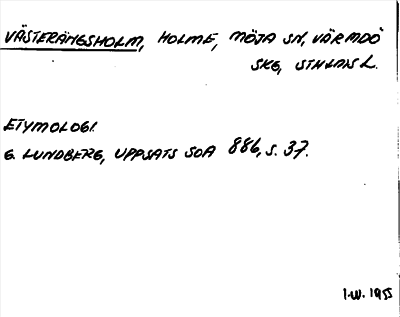 VÄSTERÄNGSHOLM, HOLME, MÖJA SN, VÄRMDÖ
SKG, STHLMS L.
ETYMOLOGI.
G. LUNDBERG, UPPSATS SOA 886, S. 37.
I.W. 1955